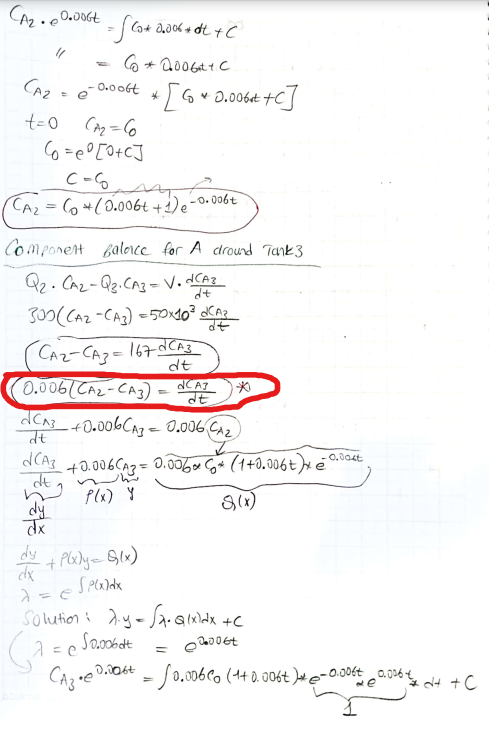 C_A2 · e^0.006t = ∫ C₀ * 0.006 * dt + C
" = C₀ * 0.006t + C
C_A2 = e^-0.006t * [C₀ * 0.006t + C]
t=0 C_A2 = C₀
C₀ = e⁰ [0+C]
C = C₀
C_A2 = C₀ * (0.006t + 1) e^-0.006t
Component Balance for A around Tank3
Q₂ · C_A2 - Q₃ · C_A3 = V · dC_A3/dt
300(C_A2 - C_A3) = 50x10³ dC_A3/dt
C_A2 - C_A3 = 167 dC_A3/dt
0.006(C_A2 - C_A3) = dC_A3/dt *
dC_A3/dt + 0.006 C_A3 = 0.006 C_A2
dC_A3/dt + 0.006 C_A3 = 0.006 * C₀ * (1+0.006t) * e^-0.006t
dy/dx P(x) y Q(x)
dy/dx + P(x)y = Q(x)
λ = e^∫P(x)dx
Solution: λ·y = ∫λ·Q(x)dx + C
λ = e^∫0.006dt = e^0.006t
C_A3 · e^0.006t = ∫0.006C₀ (1+0.006t) * e^-0.006t * e^0.006t * dt + C
1